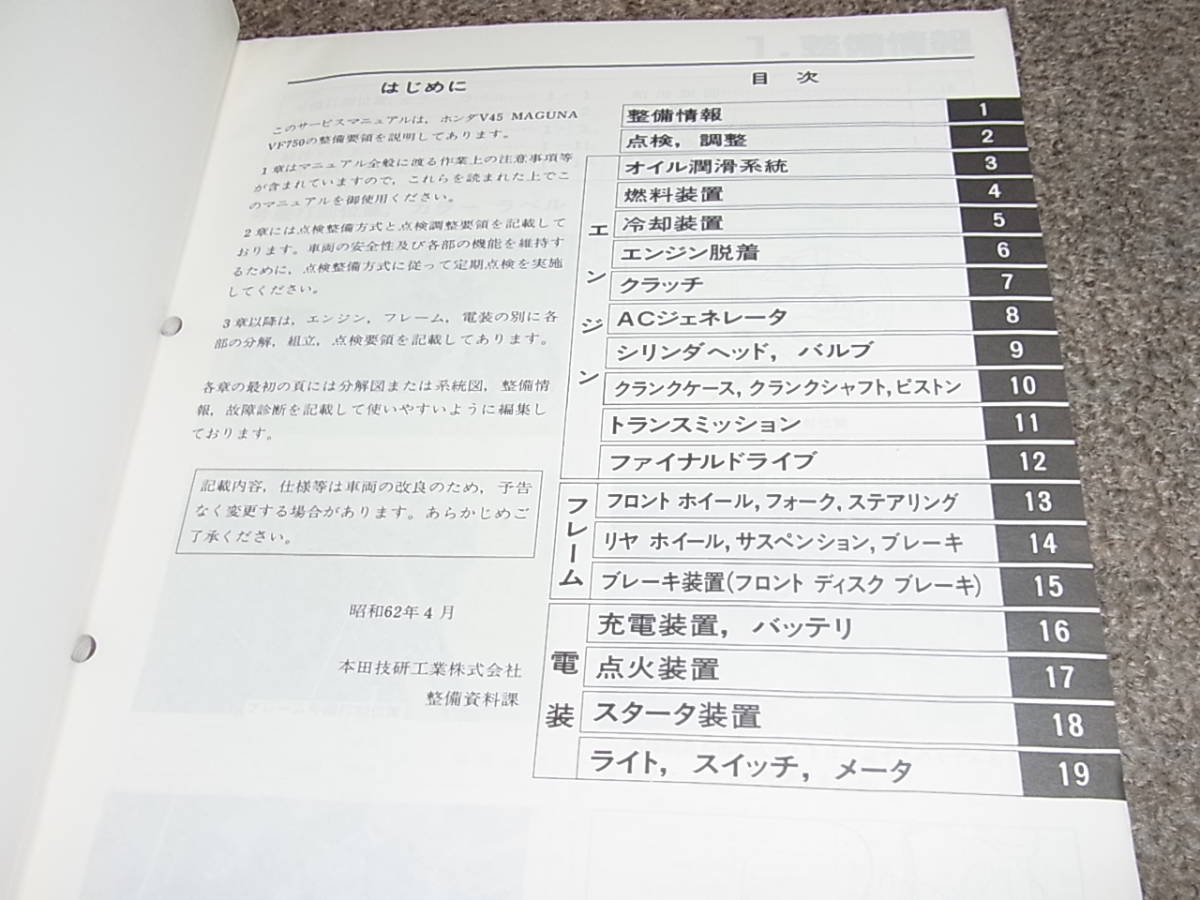 はじめに
このサービスマニュアルは，ホンダV45 MAGUNA
VF750の整備要領を説明してあります。
1章はマニュアル全般に渡る作業上の注意事項等
が含まれていますので，これらを読まれた上でこ
のマニュアルを御使用ください。
2章には点検整備方式と点検調整要領を記載して
おります。車両の安全性及び各部の機能を維持す
るために，点検整備方式に従って定期点検を実施
してください。
3章以降は，エンジン，フレーム，電装の別に各
部の分解，組立，点検要領を記載してあります。
各章の最初の頁には分解図または系統図，整備情
報，故障診断を記載して使いやすいように編集し
ております。
記載内容，仕様等は車両の改良のため，予告
なく変更する場合があります。あらかじめご
了承ください。
昭和62年4月
本田技研工業株式会社
整備資料課
目 次
整備情報 1
点検，調整 2
エンジン
オイル潤滑系統 3
燃料装置 4
冷却装置 5
エンジン脱着 6
クラッチ 7
ACジェネレータ 8
シリンダヘッド，バルブ 9
クランクケース，クランクシャフト，ピストン 10
トランスミッション 11
ファイナルドライブ 12
フレーム
フロント ホイール，フォーク，ステアリング 13
リヤ ホイール，サスペンション，ブレーキ 14
ブレーキ装置(フロント ディスク ブレーキ) 15
電装
充電装置，バッテリ 16
点火装置 17
スタータ装置 18
ライト，スイッチ，メータ 19